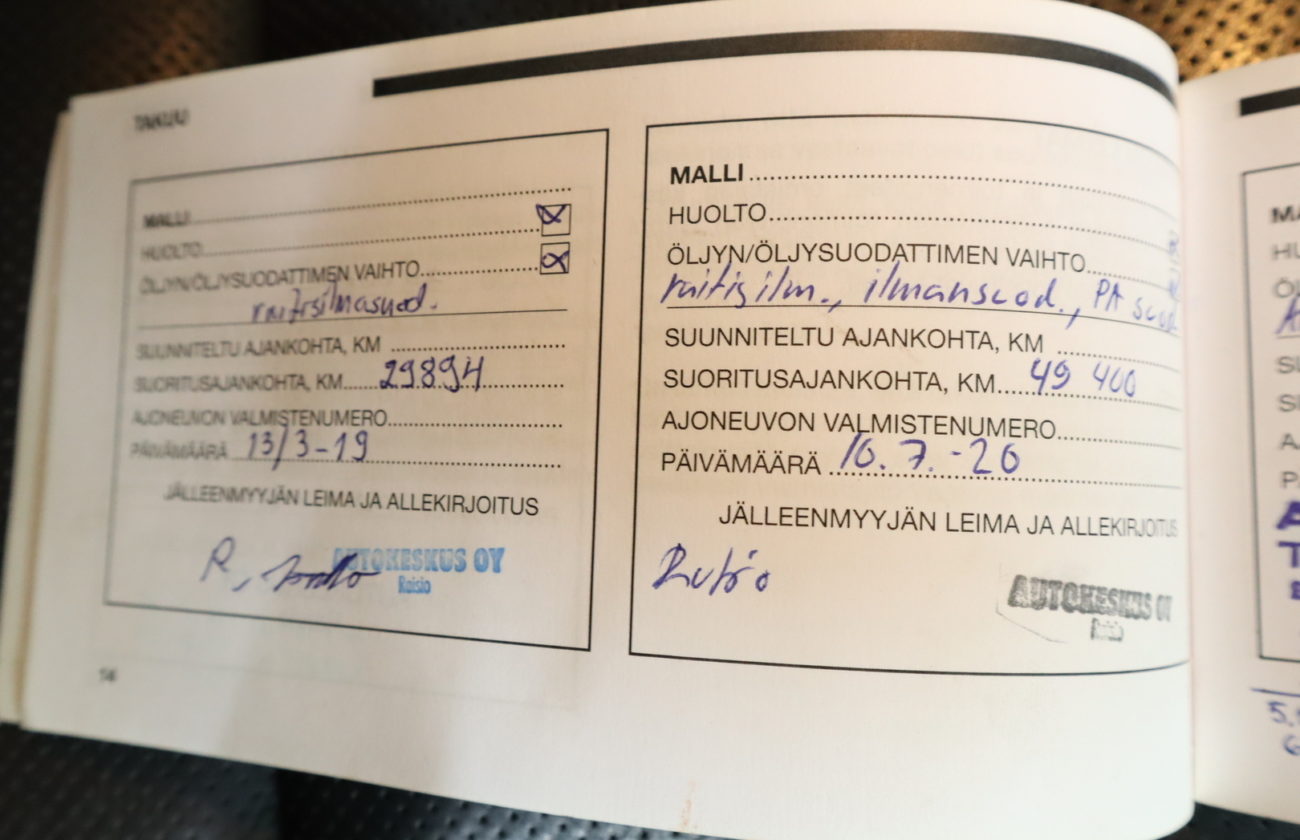 TAKUU
MALLI
HUOLTO
ÖLJYN/ÖLJYSUODATTIMEN VAIHTO
raitisilmasuod.
SUUNNITELTU AJANKOHTA, KM
SUORITUSAJANKOHTA, KM 29894
AJONEUVON VALMISTENUMERO
PÄIVÄMÄÄRÄ 13/3-19
JÄLLEENMYYJÄN LEIMA JA ALLEKIRJOITUS
R,
AUTOKESKUS OY
Raisio
MALLI
HUOLTO
ÖLJYN/ÖLJYSUODATTIMEN VAIHTO
raitisilm., ilmansuod., PA suod
SUUNNITELTU AJANKOHTA, KM
SUORITUSAJANKOHTA, KM 49 400
AJONEUVON VALMISTENUMERO
PÄIVÄMÄÄRÄ 10.7.-20
JÄLLEENMYYJÄN LEIMA JA ALLEKIRJOITUS
AUTOKESKUS OY
Raisio